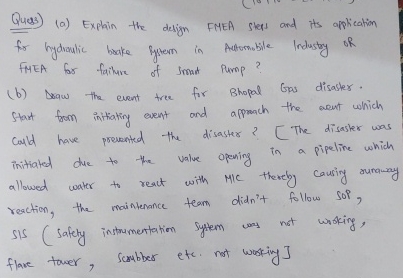 Ques) (a) Explain the design FMEA steps and its application
for hydraulic brake System in Automobile Industry OR
FMEA for failure of Smart Pump ?
(b) Draw the event tree for Bhopal Gas disaster.
Start from initiating event and approach the event which
Could have prevented the disaster ? [ The disaster was
initiated due to the valve opening in a pipeline which
allowed water to react with MIC thereby Causing runaway
reaction, the maintenance team didn't follow SOP,
SIS ( Safety instrumentation System was not working,
flare tower, Scrubber etc. not working ]